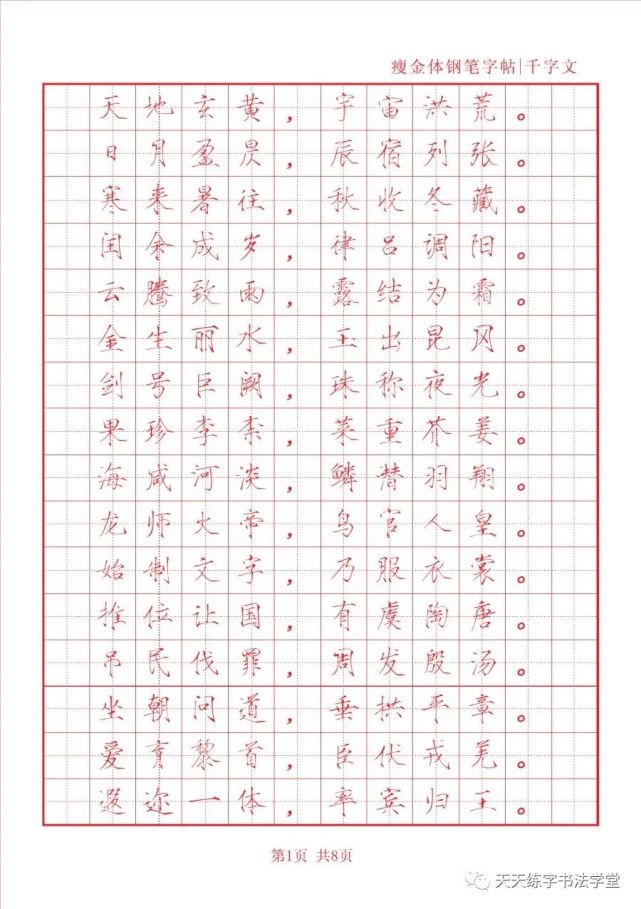 瘦金体钢笔字帖|千字文
天地玄黄，宇宙洪荒。
日月盈昃，辰宿列张。
寒来暑往，秋收冬藏。
闰余成岁，律吕调阳。
云腾致雨，露结为霜。
金生丽水，玉出昆冈。
剑号巨阙，珠称夜光。
果珍李柰，菜重芥姜。
海咸河淡，鳞潜羽翔。
龙师火帝，鸟官人皇。
始制文字，乃服衣裳。
推位让国，有虞陶唐。
吊民伐罪，周发殷汤。
坐朝问道，垂拱平章。
爱育黎首，臣伏戎羌。
遐迩一体，率宾归王。
第1页 共8页
天天练字书法学堂